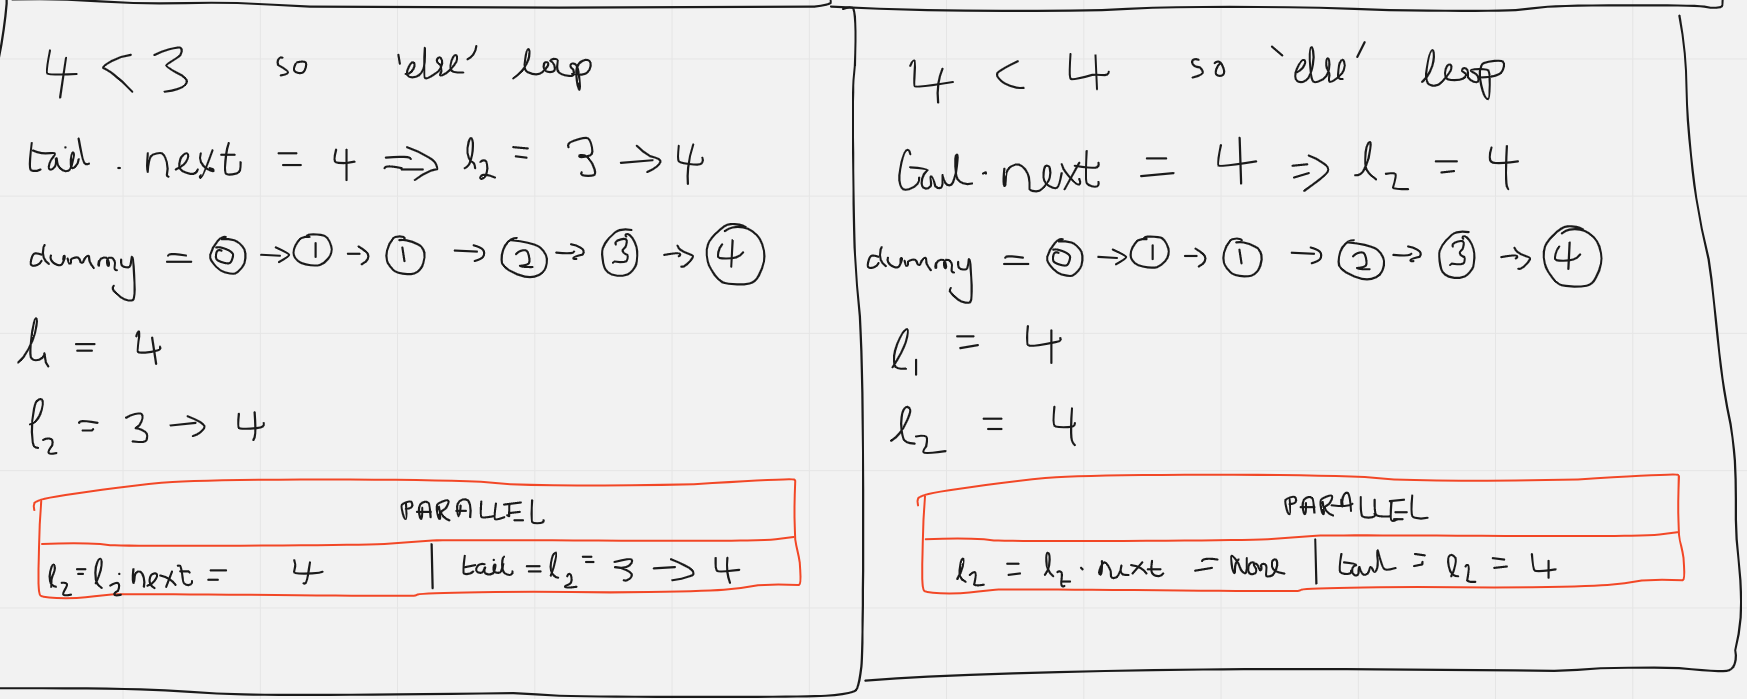 4 < 3 so 'else' loop
tail.next = 4 => l2 = 3 → 4
dummy = 0 → 1 → 1 → 2 → 3 → 4
l1 = 4
l2 = 3 → 4
PARALLEL
l2 = l2.next = 4 | tail = l2 = 3 → 4
4 < 4 so 'else' loop
tail.next = 4 => l2 = 4
dummy = 0 → 1 → 1 → 2 → 3 → 4
l1 = 4
l2 = 4
PARALLEL
l2 = l2.next = None | tail = l2 = 4